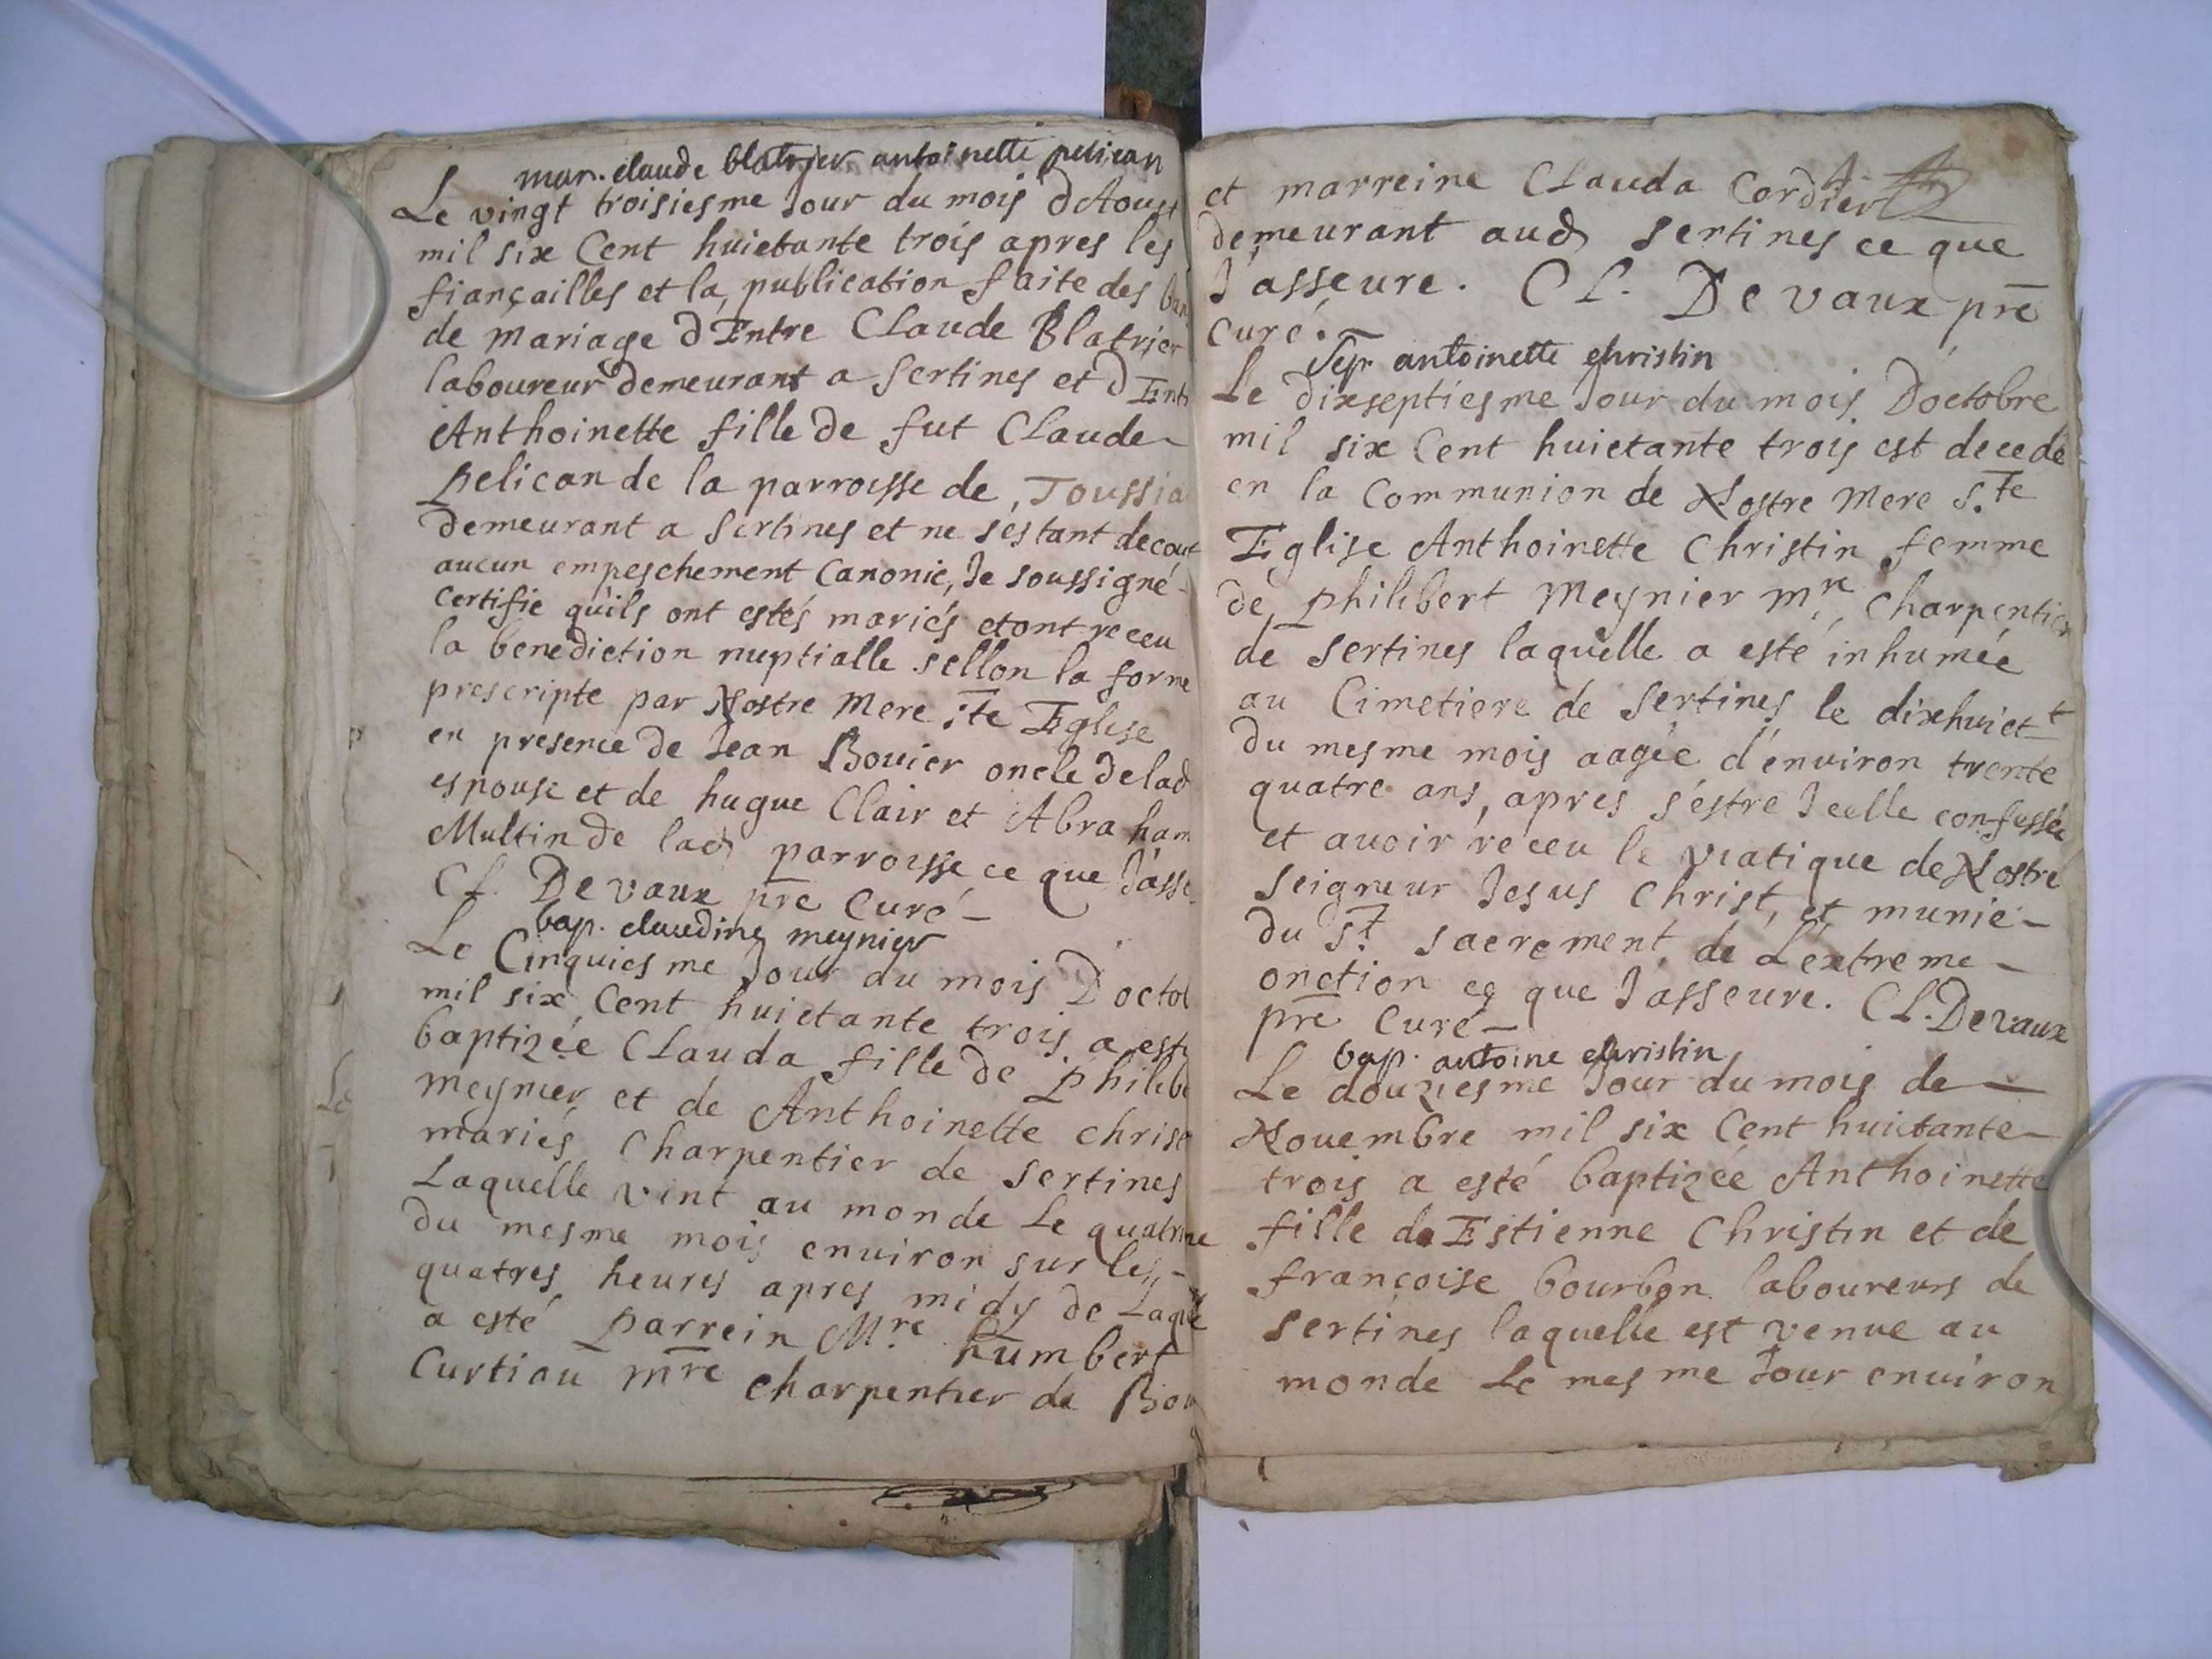 mar. claude blatrier antoinette pelican
Le vingt troisiesme Jour du mois dAoust
mil six Cent huictante trois apres les
fiançailles et la publication faite des ban
de mariage dEntre Claude Blatrier
laboureur demeurant a Sertines et dEntr
Anthoinette fille de fut Claude
pelican de la parroisse de Toussia
demeurant a Sertines et ne s'estant decout
aucun empeschement Canonic, Je soussigné
certifie qu'ils ont estés mariés et ont receu
la benediction nuptialle sellon la forme
prescripte par Nostre Mere Ste Eglise
en presence de Jean Bouier oncle de lad
espouse et de hugue Clair et Abraham
Multin de lad parroisse ce que J'asse
Cl. Devaux pre Curé
bap. claudine meynier
Le Cinquiesme Jour du mois D'octob
mil six Cent huictante trois a esté
baptizée Clauda fille de philibe
meynier et de Anthoinette chris
mariés Charpentier de Sertines
Laquelle vint au monde Le quatrme
du mesme mois environ sur les
quatres heures apres midy de Laqlle
a esté parrein Mre humbert
Curtiau mre charpentier de Bou
et marreine Clauda Cordier
demeurant aud Sertines ce que
J'asseure. Cl. Devaux pre
Curé.
Sep. antoinette christin
Le dixseptiesme Jour du mois D'octobre
mil six Cent huictante trois est decedé
en la Communion de Nostre Mere S.te
Eglise Anthoinette Christin femme
de philibert Meynier mre Charpentier
de Sertines laquelle a esté inhumée
au Cimetiere de Sertines le dixhuictt
du mesme mois aagée d'environ trente
quatre ans, apres s'estre Jcelle confessée
et auoir receu le viatique de Nostre
Seigneur Jesus Christ, et munie
du St Sacrement de L'extreme
onction ce que J'asseure. Cl. Devaux
pre Curé
bap. antoine christin
Le douziesme Jour du mois de
Nouembre mil six Cent huictante
trois a esté baptizée Anthoinette
fille de Estienne Christin et de
françoise bourbon laboureurs de
Sertines laquelle est venue au
monde Le mesme Jour environ